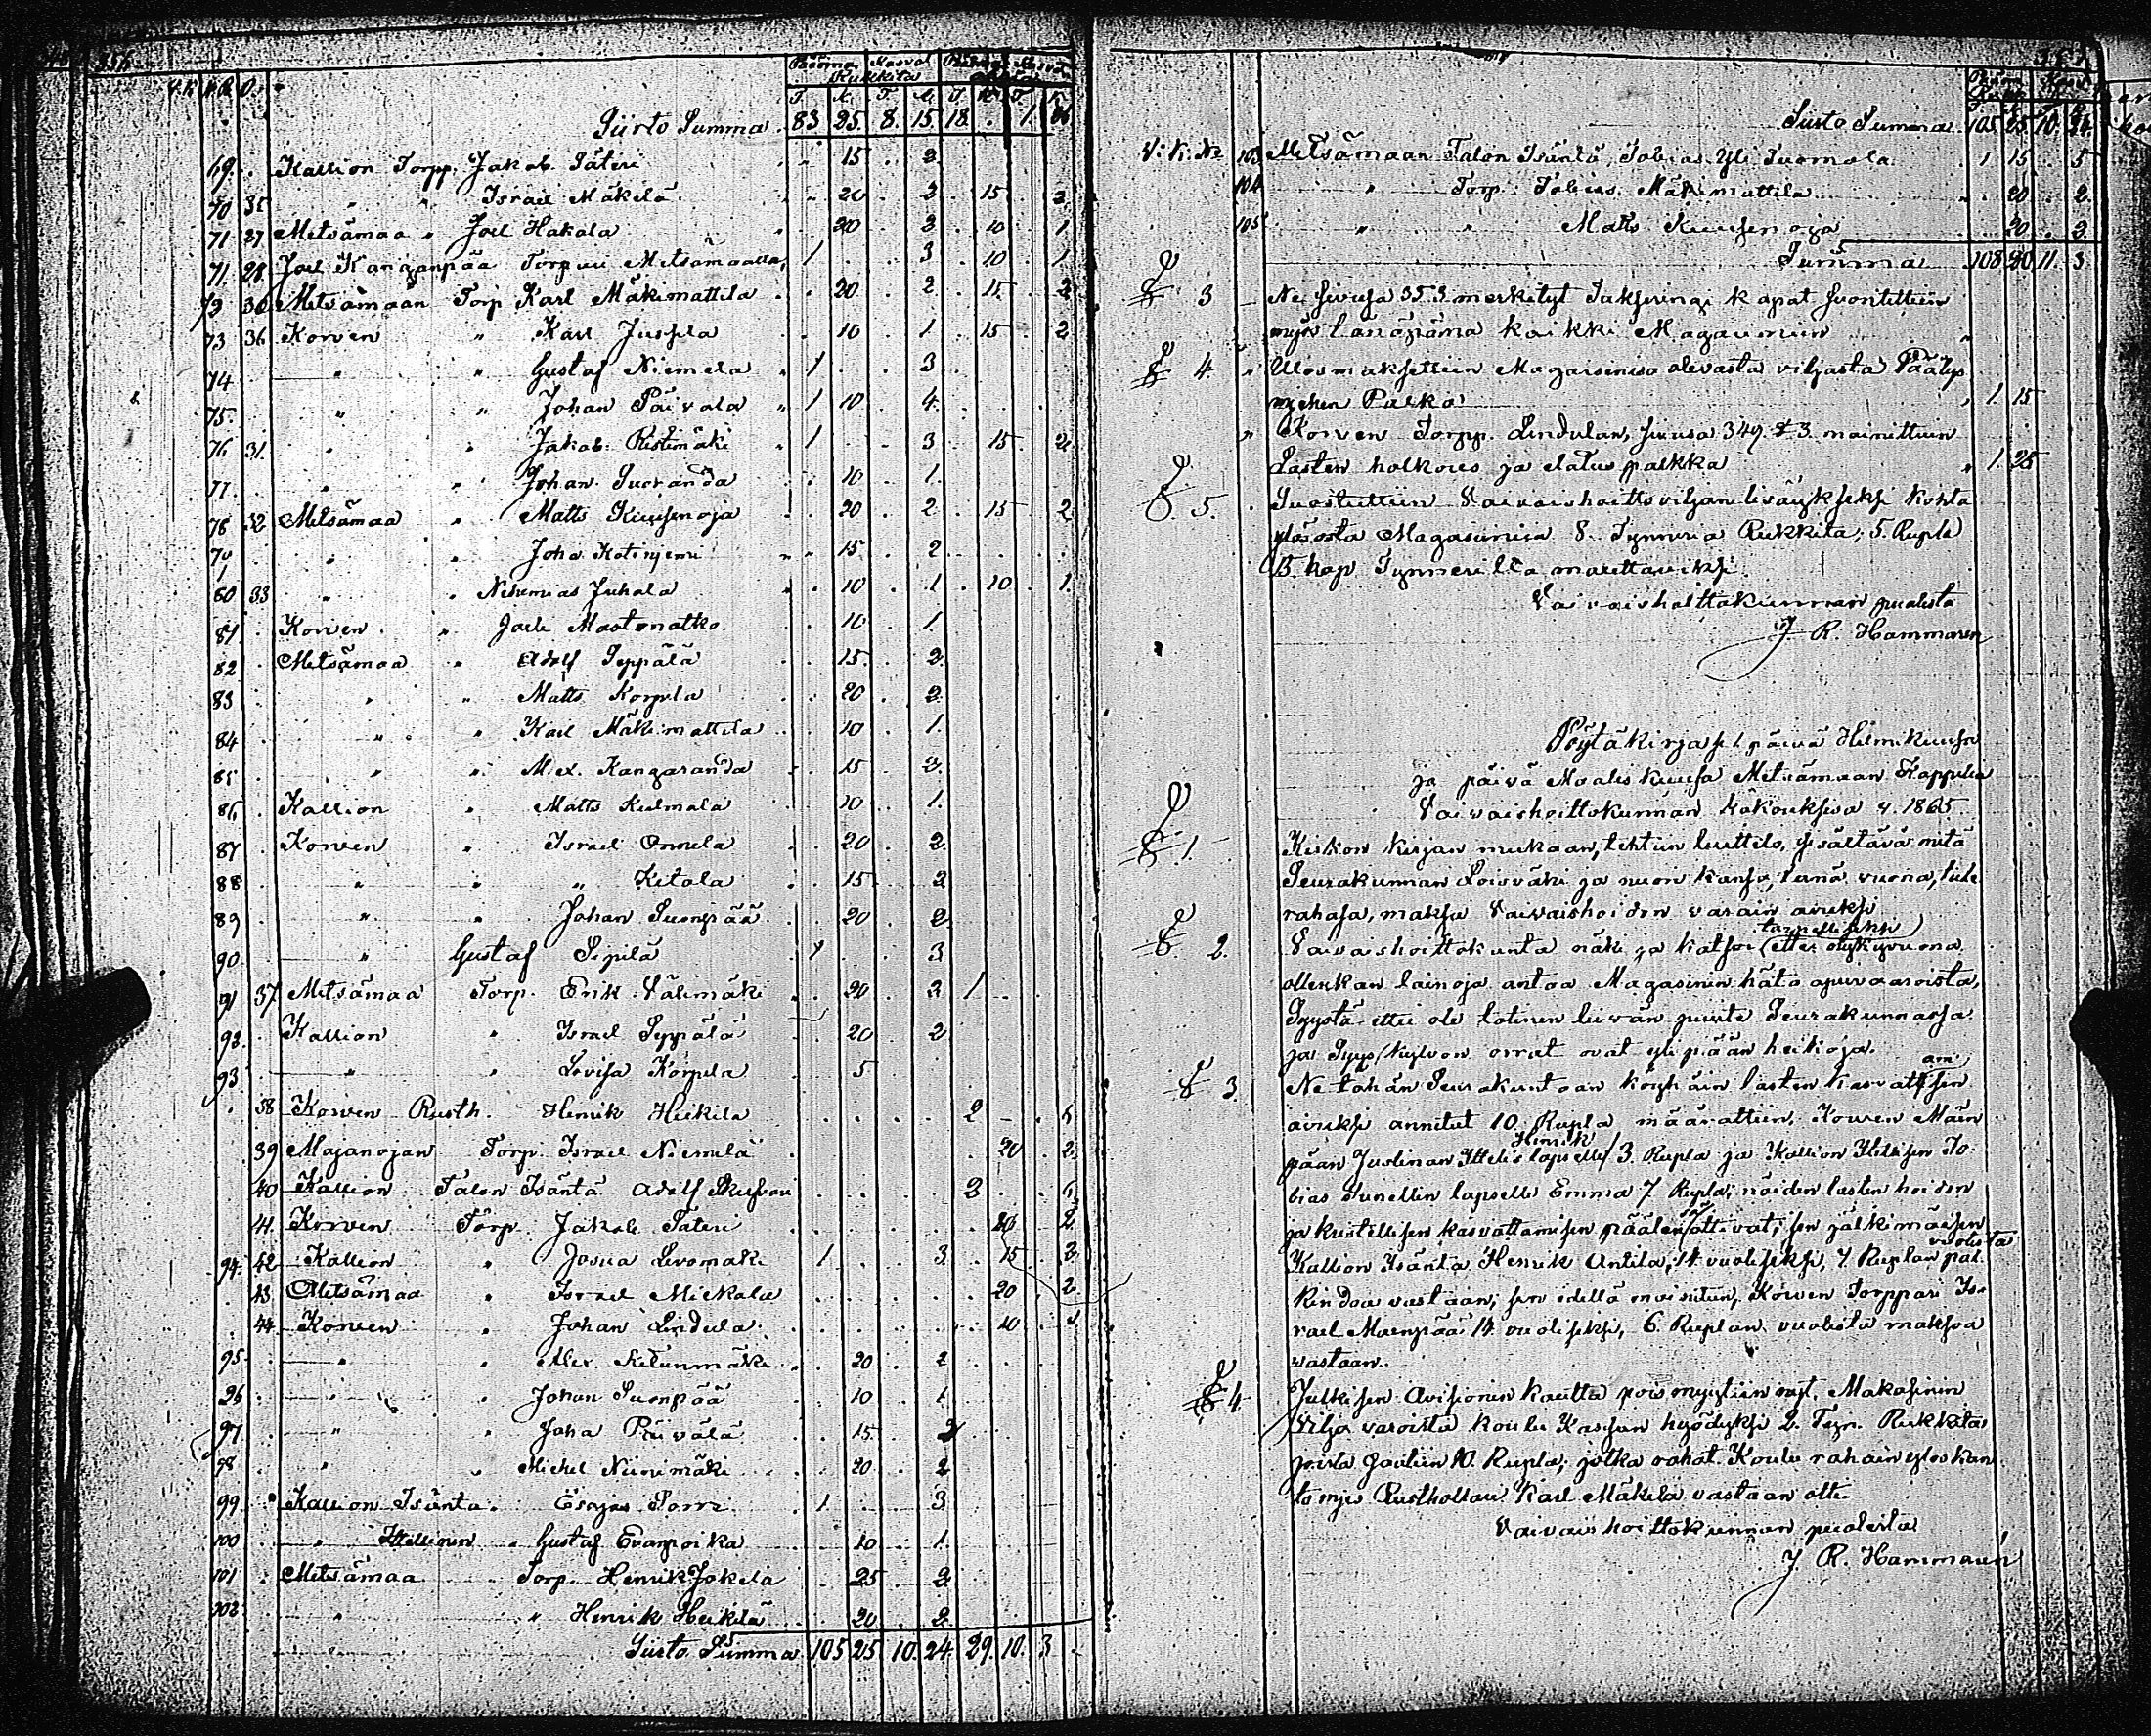 356
Pääoma Kasvot Pääoma Kasvot
Rukkita
T. K. T. K. T. K. T. K.
Siirto Summa 83 25 8 15 18 . 1
69 Kallion Torpp. Jakob Päteri 15 2
70 35 " " Israel Mäkelä 20 3 15 2
71 27 Metsämaa " Joel Hakala 20 2 10 1
71 28 Joel Kanganpää Torpari Metsämaalla 1 3 10 1
72 30 Metsämaan Torp Karl Mäkimattila 20 2 15 2
73 36 Korven " Karl Jussila 10 1 15 2
74 " " Gustaf Niemela 1 3
75 " " Johan Päivala 1 10 4
76 31 " " Jakob Ristimäki 1 3 15 2
77 " " Johan Suoranda 10 1
78 32 Metsämaa " Matts Kuusenoja 20 2 15 2
79 " " Joha Kotinjemi 15 2
80 33 " " Nehemias Juhala 10 1 10 1
81 Korven " Joeli Mastonatko 10 1
82 Metsämaa " Adolf Seppälä 15 2
83 " " Matts Korpela 20 2
84 " " Karl Mäkimattila 10 1
85 " " M. ex. Kangaranda 15 2
86 Kallion " Matts Kulmala 10 1
87 Korven " Israel Onnela 20 2
88 " " " Ketola 15 2
89 " " Johan Suonpää 20 2
90 " Gustaf Sipilä 1 3
91 37 Metsämaa Torp. Erik Välimäki 20 2 1
92 Kallion " Israel Seppälä 20 2
93 " " Lovisa Korpela 5
38 Korven Rusth. Henrik Heikila 2 5
39 Majanojan Torp. Israel Niemelä 20 2
40 Kallion Talon Isäntä Adolf 2 5
41 Korven Torp Jakob Päteri 20 2
94 42 Kallion " Josua Levomäki 1 3 15 2
43 Metsämaa " Israel Mickala 20 2
44 Korven " Johan Lindula 10
95 " " Alex. Ketunmäki 20 2
96 " " Johan Suonpää 10 1
97 " " Joha Päivälä 15 2
98 " " Michel Niinimäki 20 2
99 Kallion Isäntä Esajas Sorri 1 3
100 " Itellinen " Gustaf Evanpoika 10 1
101 Metsämaa Torp. Henrik Jokela 25 2
102 " " Henrik Heikilä 20 2
Siirto Summa 105 25 10 24 29 10 3
357
Siirto Summa 105 25 10 24
V. K. No 103 Metsämaan Talon Isäntä Tobias Yli Tuomola 1 15 5
104 " Torp. Tobias Mäkimattila 20 2
105 " " Matts Kuusenoja 20 2
Summa 108 20 11 3
§ 3 Ne sivusa 353 merkityt Takseringi kapat suoritettiin
myös tänäpänä kaikki Magasiniin
§ 4. Ulos maksettiin Magasinisa olevasta viljasta Päälys
myehen Palka 1 15
" Korven Torpp. Lindulan, sivusa 349 § 3 mainittuin
Lasten holhous ja elatus palkka 1 25
§ 5. Suostuttiin Vaivaishoittoviljan lisäykseksi kohta
ylösosta Magasinisa 8 Tynnyriä Rukkita, 5 Rupla
15 kop Tynnerilta maxettaviksi
Vaivaishoittokunnan puolesta
J R. Hammaren
Pöytäkirja 1 päivä Helmikuusa
ja päivä Maaliskuusa Metsämaan Kappelin
Vaivaishoittokunnan kokouksisa v. 1865.
§ 1. Kirkon kirjan mukaan, tehtiin luettelo, sisältävä mitä
Seurakunnan Loisväki ja muon kansa, tänä vuona,
rahasa, maksa Vaivaishoidon varain avuksi
§ 2. Vaivaishoittokunta näki ja katsoi tarpelliseksi ettei nykyvuona
ollenkan lainoja antaa Magasinin hätä apuvaroista,
Syystä ettei ole totinen leivän puute Seurakunnassa
ja Syys kylvön orrat ovat yli päään heikoja.
§ 3. Ne tähän Seurakuntaan köyhäin lasten kasvattamisen
avuksi annetut 10 Rupla määrättiin, Korven Mäen
pään Justinan Ittelis lapselle Henrik 3. Rupla ja Kallion Itellisen To-
bias Sunellin lapselle Emma 7 Rupla; näiden lasten hoidon
ja kristellisen kasvattamisen päälensä ottivat, sen jälkimäisen
Kallion Isäntä Henrik Antila, 14 vuotiseksi, 7 Ruplan vuotista pal-
kindoa vastaan; sen edellä mainitun, Korven Torppari Is-
rael Maenpää 14 vuotiseksi, 6 Ruplan vuotista maksoa
vastaan.
§ 4 Julkisen Avisionin kautta pois myytiin nyt, Makasinin
Vilja varoista koulu Kassan hyödyksi 2 Tyn. Rukkita
joista saatiin 10 Rupla; jotka rahat Koulu rahain ylöskan
tomjes Rusthollari Karl Mäkelä vastaan otti.
Vaivaishoittokunnan puolesta
J. R. Hammaren